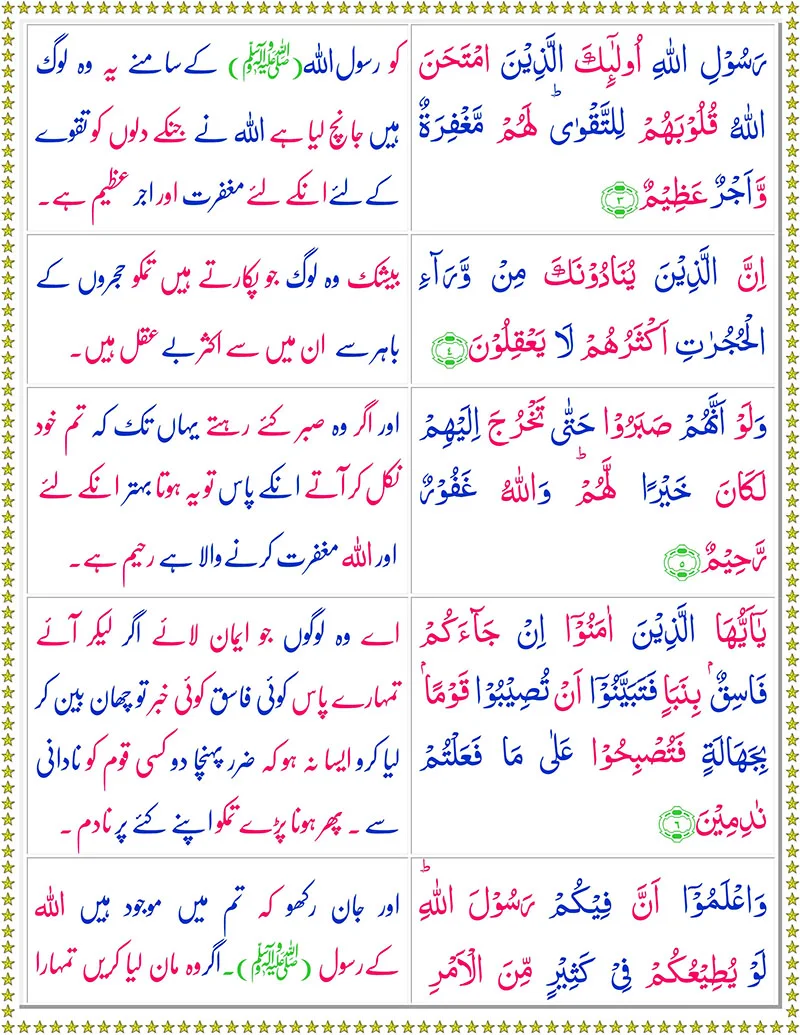 رَسُوْلِ اللهِ اُولٰٓئِكَ الَّذِيْنَ امْتَحَنَ
اللهُ قُلُوْبَهُمْ لِلتَّقْوٰىؕ لَهُمْ مَّغْفِرَةٌ
وَّاَجْرٌ عَظِيْمٌ ۳
کو رسول اللہ (ﷺ) کے سامنے یہ وہ لوگ
ہیں جانچ لیا ہے اللہ نے جنکے دلوں کو تقوے
کے لئے انکے لئے مغفرت اور اجر عظیم ہے۔
اِنَّ الَّذِيْنَ يُنَادُوْنَكَ مِنْ وَّرَآءِ
الْحُجُرٰتِ اَكْثَرُهُمْ لَا يَعْقِلُوْنَ ٤
بیشک وہ لوگ جو پکارتے ہیں تمکو حجروں کے
باہر سے ان میں سے اکثر بے عقل ہیں۔
وَلَوْ اَنَّهُمْ صَبَرُوْا حَتّٰى تَخْرُجَ اِلَيْهِمْ
لَكَانَ خَيْرًا لَّهُمْؕ وَاللهُ غَفُوْرٌ
رَّحِيْمٌ ۵
اور اگر وہ صبر کئے رہتے یہاں تک کہ تم خود
نکل کر آتے انکے پاس تو یہ ہوتا بہتر انکے لئے
اور اللہ مغفرت کرنے والا ہے رحیم ہے۔
يٰۤاَيُّهَا الَّذِيْنَ اٰمَنُوْۤا اِنْ جَآءَكُمْ
فَاسِقٌۢ بِنَبَاٍ فَتَبَيَّنُوْۤا اَنْ تُصِيْبُوْا قَوْمًۢا
بِجَهَالَةٍ فَتُصْبِحُوْا عَلٰى مَا فَعَلْتُمْ
نٰدِمِيْنَ ٦
اے وہ لوگوں جو ایمان لائے اگر لیکر آئے
تمہارے پاس کوئی فاسق کوئی خبر تو چھان بین کر
لیا کرو ایسا نہ ہو کہ ضرر پہنچا دو کسی قوم کو نادانی
سے ۔ پھر ہونا پڑے تمکو اپنے کئے پر نادم ۔
وَاعْلَمُوْۤا اَنَّ فِيْكُمْ رَسُوْلَ اللهِؕ
لَوْ يُطِيْعُكُمْ فِىْ كَثِيْرٍ مِّنَ الْاَمْرِ
اور جان رکھو کہ تم میں موجود ہیں اللہ
کے رسول (ﷺ)۔ اگر وہ مان لیا کریں تمہارا